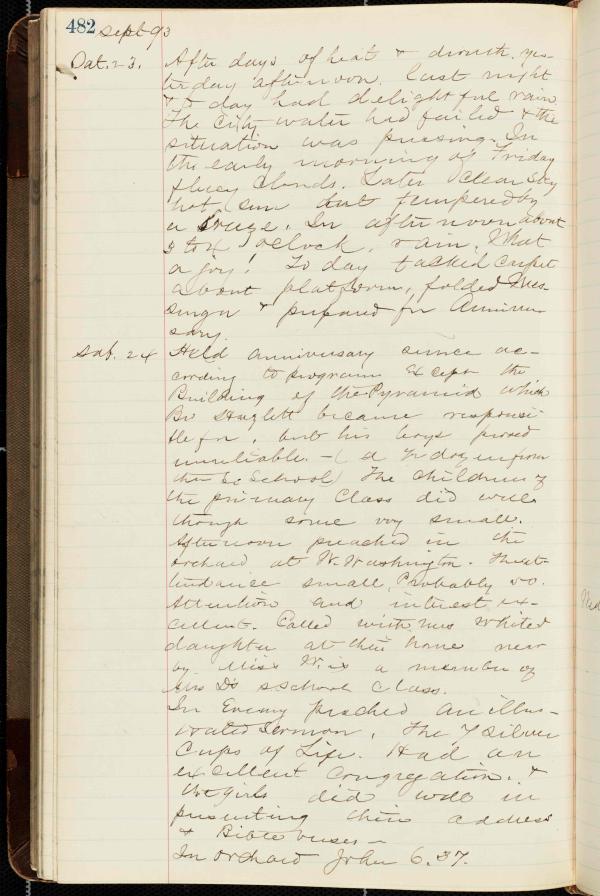 482 Sept 93
Sat. 23. After days of heat & drouth, yes-
terday afternoon, last night
& to day had delightful rain.
The City water had failed & the
situation was pressing. In
the early morning of Friday
fleecy clouds. Later clear sky
hot sun but tempered by
a breeze. In afternoon about
3 to 4 oclock, rain. What
a joy! To day tacked carpet
about platform, folded Mes-
senger & prepared for Anniver
sary.
Sab. 24 Held anniversary service ac-
cording to program except the
Building of the Pyramid which
Bro Hazlett became responsi-
ble for, but his boys proved
unreliable. — ( day in from
the School) The children of
the primary Class did well
though some very small.
Afternoon preached in the
orchard at W. Washington. The at-
tendance small, Probably 20.
Attention and interest ex-
cellent. Called with Mrs Whited
daughter at their home near
by Miss Wix a member of
Mrs D's school class.
In Evening preached an illus-
trated Sermon, The 7 Silver
Cups of Life. Had an
excellent congregation. &
the girls did well in
presenting their address
& Bible verses —
In orchard John 6.37.